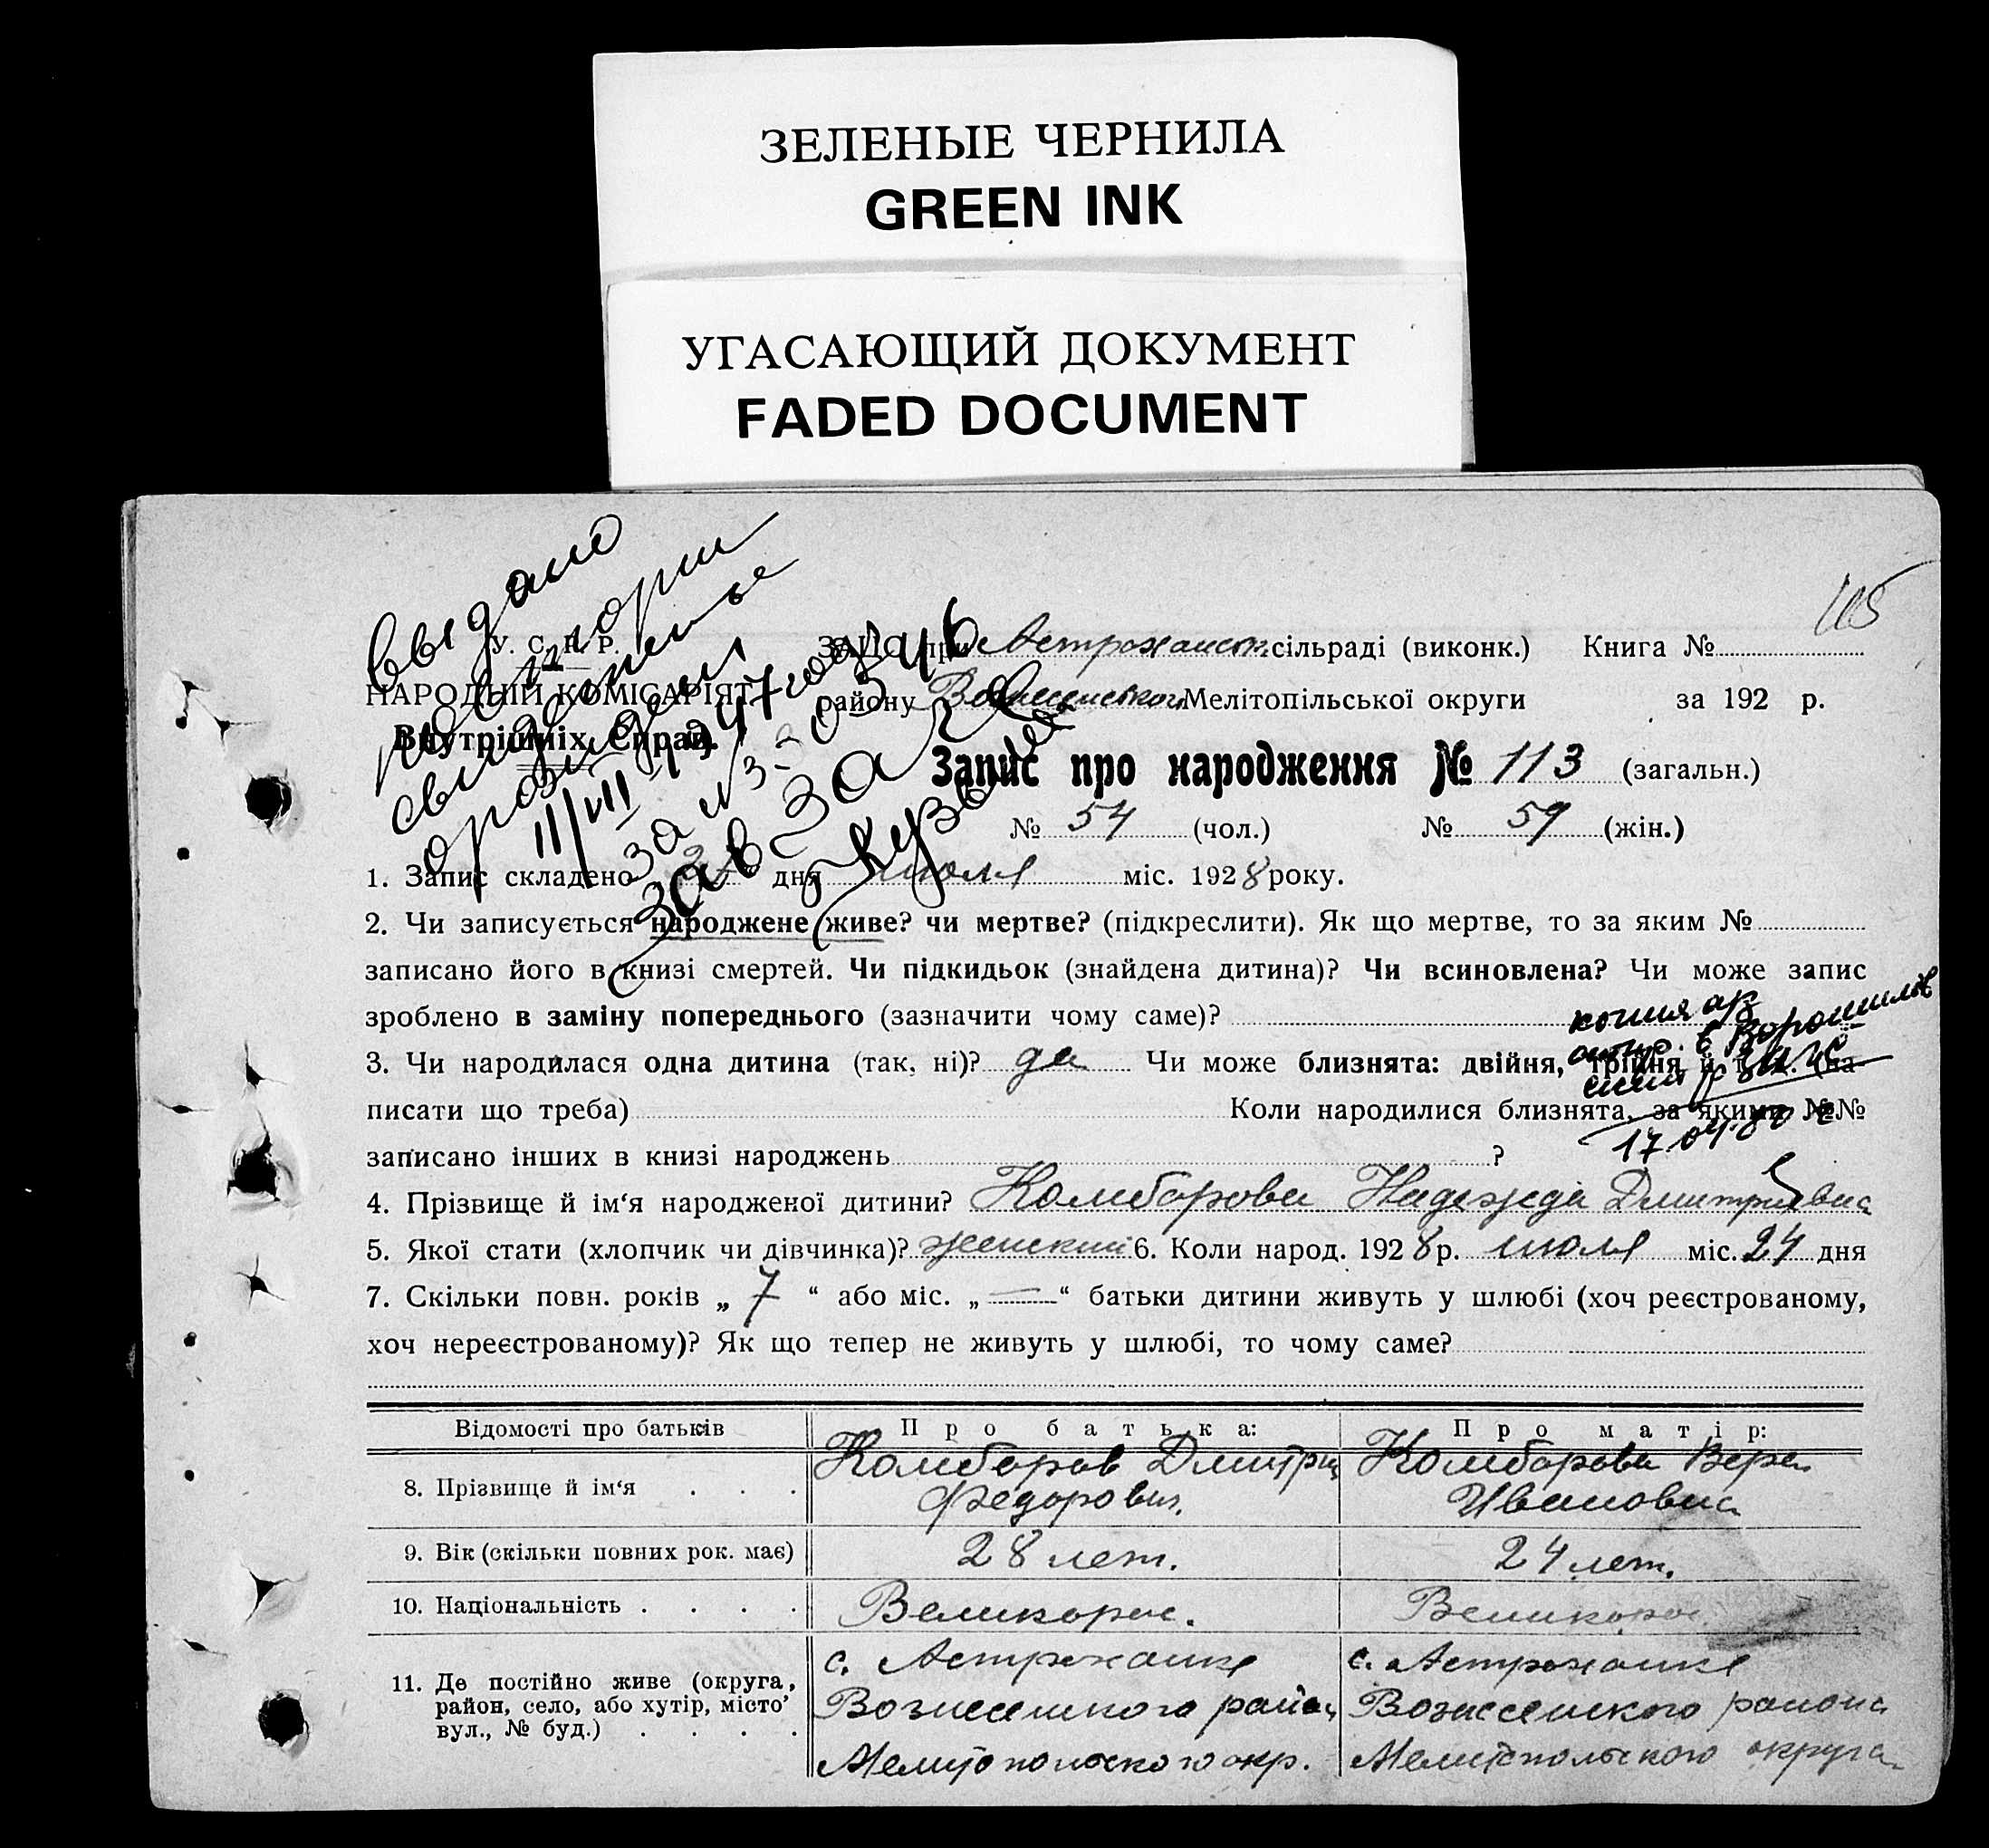 ЗЕЛЕНЫЕ ЧЕРНИЛА
GREEN INK
УГАСАЮЩИЙ ДОКУМЕНТ
FADED DOCUMENT
115
Выдано
повторн
свидетенье
о рождении
11/VII 1947 года
за №
Зав Загс
У. С. Р. Р.
НАРОДНІЙ КОМІСАРІЯТ
Внутрішніх Справ.
ЗАГС при Астраханск. сільраді (виконк.) Книга №
району Мелітопільської округи за 192 р.
Запис про народження № 113 (загальн.)
№ 54 (чол.) № 59 (жін.)
1. Запис складено дня июля міс. 1928 року.
2. Чи записується народжене живе? чи мертве? (підкреслити). Як що мертве, то за яким №
записано його в книзі смертей. Чи підкидьок (знайдена дитина)? Чи всиновлена? Чи може запис
зроблено в заміну попереднього (зазначити чому саме)?
копия а/з
отпр. в Ворошилов
17.04.80 г
3. Чи народилася одна дитина (так, ні)? да Чи може близнята: двійня, трійня й т. и. (на-
писати що треба) Коли народилися близнята, за якими №№
записано інших в книзі народжень ?
4. Прізвище й ім‘я народженої дитини? Камборова Надежда Дмитриевна
5. Якої стати (хлопчик чи дівчинка)? женский 6. Коли народ. 1928 р. июля міс. 24 дня
7. Скільки повн. років „ 7 “ або міс. „ — “ батьки дитини живуть у шлюбі (хоч реєстрованому,
хоч нереєстрованому)? Як що тепер не живуть у шлюбі, то чому саме?
Відомості про батьків Про батька: Про матір:
8. Прізвище й ім‘я Камборов Дмитрий Федорович. Камборова Вера Ивановна
9. Вік (скільки повних рок. має) 28 лет. 24 лет.
10. Національність Великорос. Великорос.
11. Де постійно живе (округа, район, село, або хутір, місто, вул., № буд.)
с. Астраханка с. Астраханка
Вознесенского района Вознесенского района
Мелитопольского окр. Мелитопольского округа